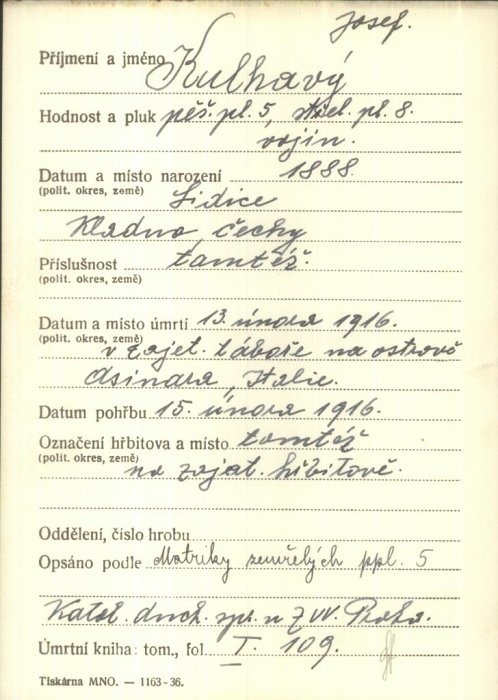 Josef.
Příjmení a jméno Kulhavý
Hodnost a pluk pěš. pl. 5, střel. pl. 8.
vojín.
Datum a místo narození 1888
(polit. okres, země) Lidice
Kladno, čechy
Příslušnost tamtéž.
(polit. okres, země)
Datum a místo úmrtí 13. února 1916.
(polit. okres, země) v zajet. táboře na ostrově
Asinara, Italie.
Datum pohřbu 15. února 1916.
Označení hřbitova a místo tamtéž
(polit. okres, země) na zajat. hřbitově.
Oddělení, číslo hrobu
Opsáno podle Matriky zemřelých ppl. 5
Katol. duch. spr. u ZVV. Praha.
Úmrtní kniha: tom., fol. I. 109.
Tiskárna MNO. — 1163-36.